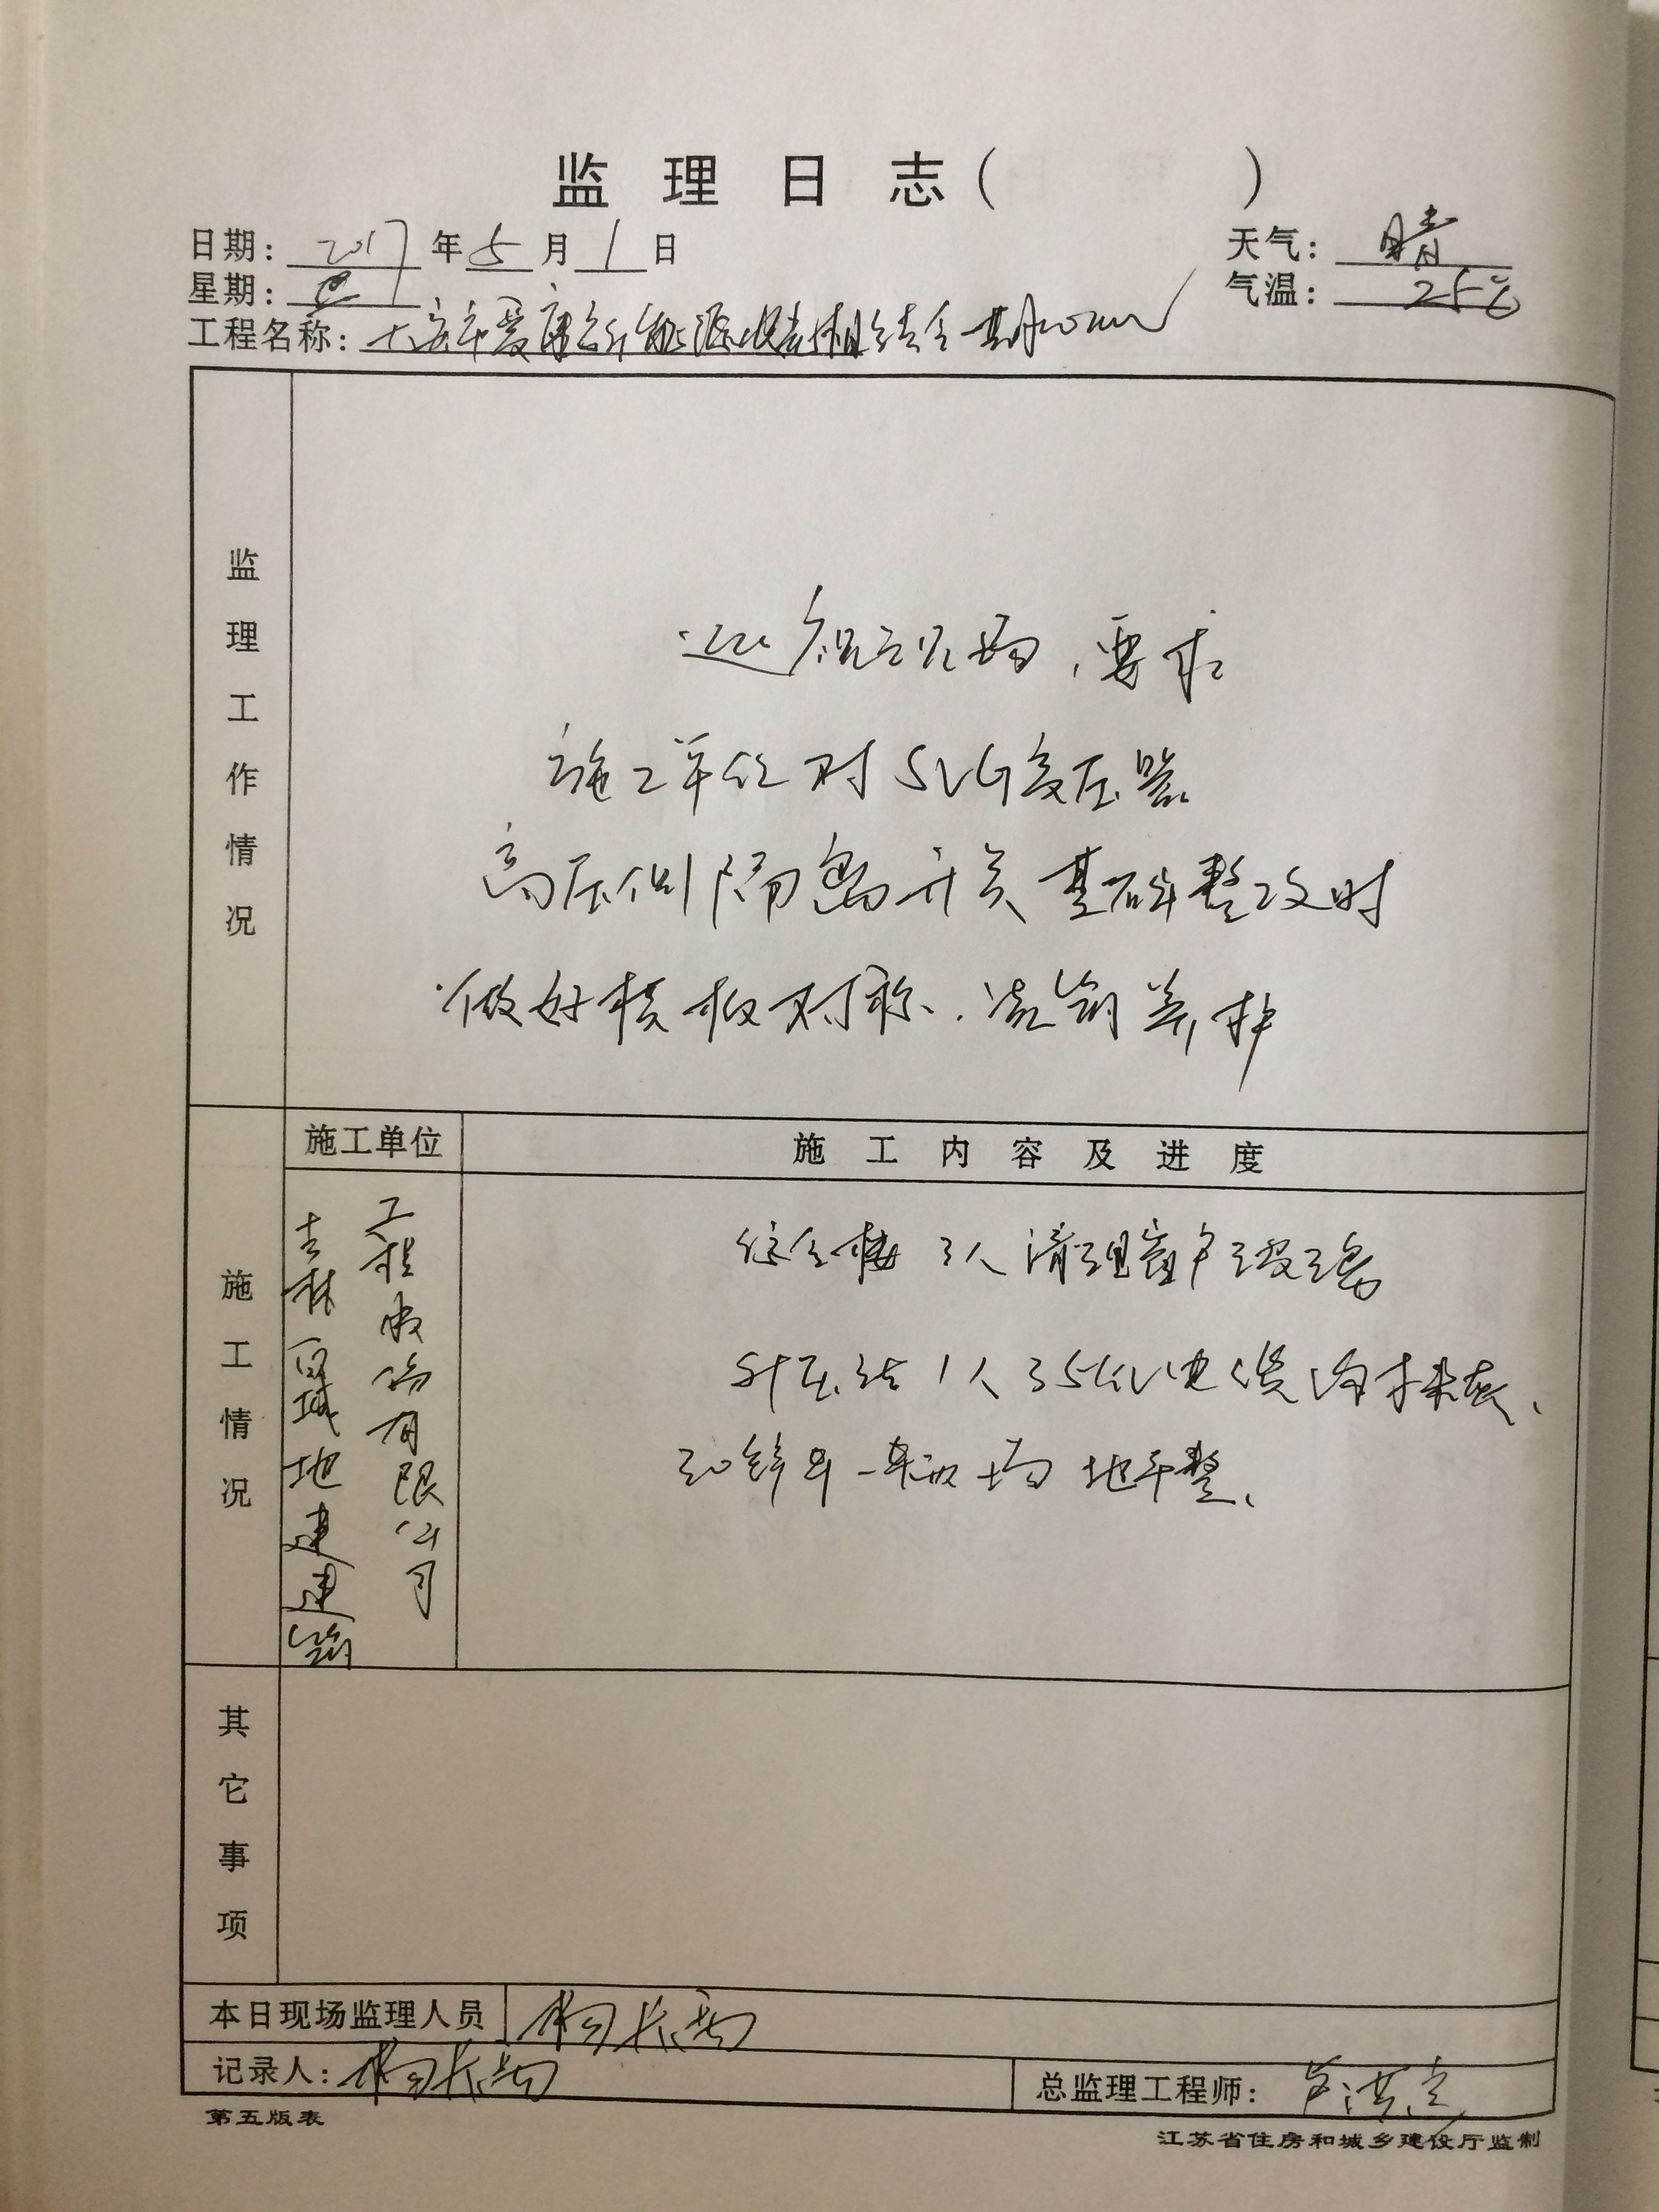 监理日志( )
日期: 2017 年 5 月 1 日
天气: 晴
星期:
气温: 25℃
工程名称: 大安市爱康新能源 相结合
监理工作情况
巡视现场,要求
施工单位对SVG变压器
高压侧隔离开关基础整改时
做好模板对称.浇筑养护
施工单位
施工内容及进度
施工情况
吉林百城地建建筑
工程 有限公司
综合楼 3人清理窗户玻璃
升压站1人35kV电缆沟抹灰、
30铲车一辆 场地平整、
其它事项
本日现场监理人员 杨长
记录人: 杨长
总监理工程师: 卢洪
第五版表
江苏省住房和城乡建设厅监制